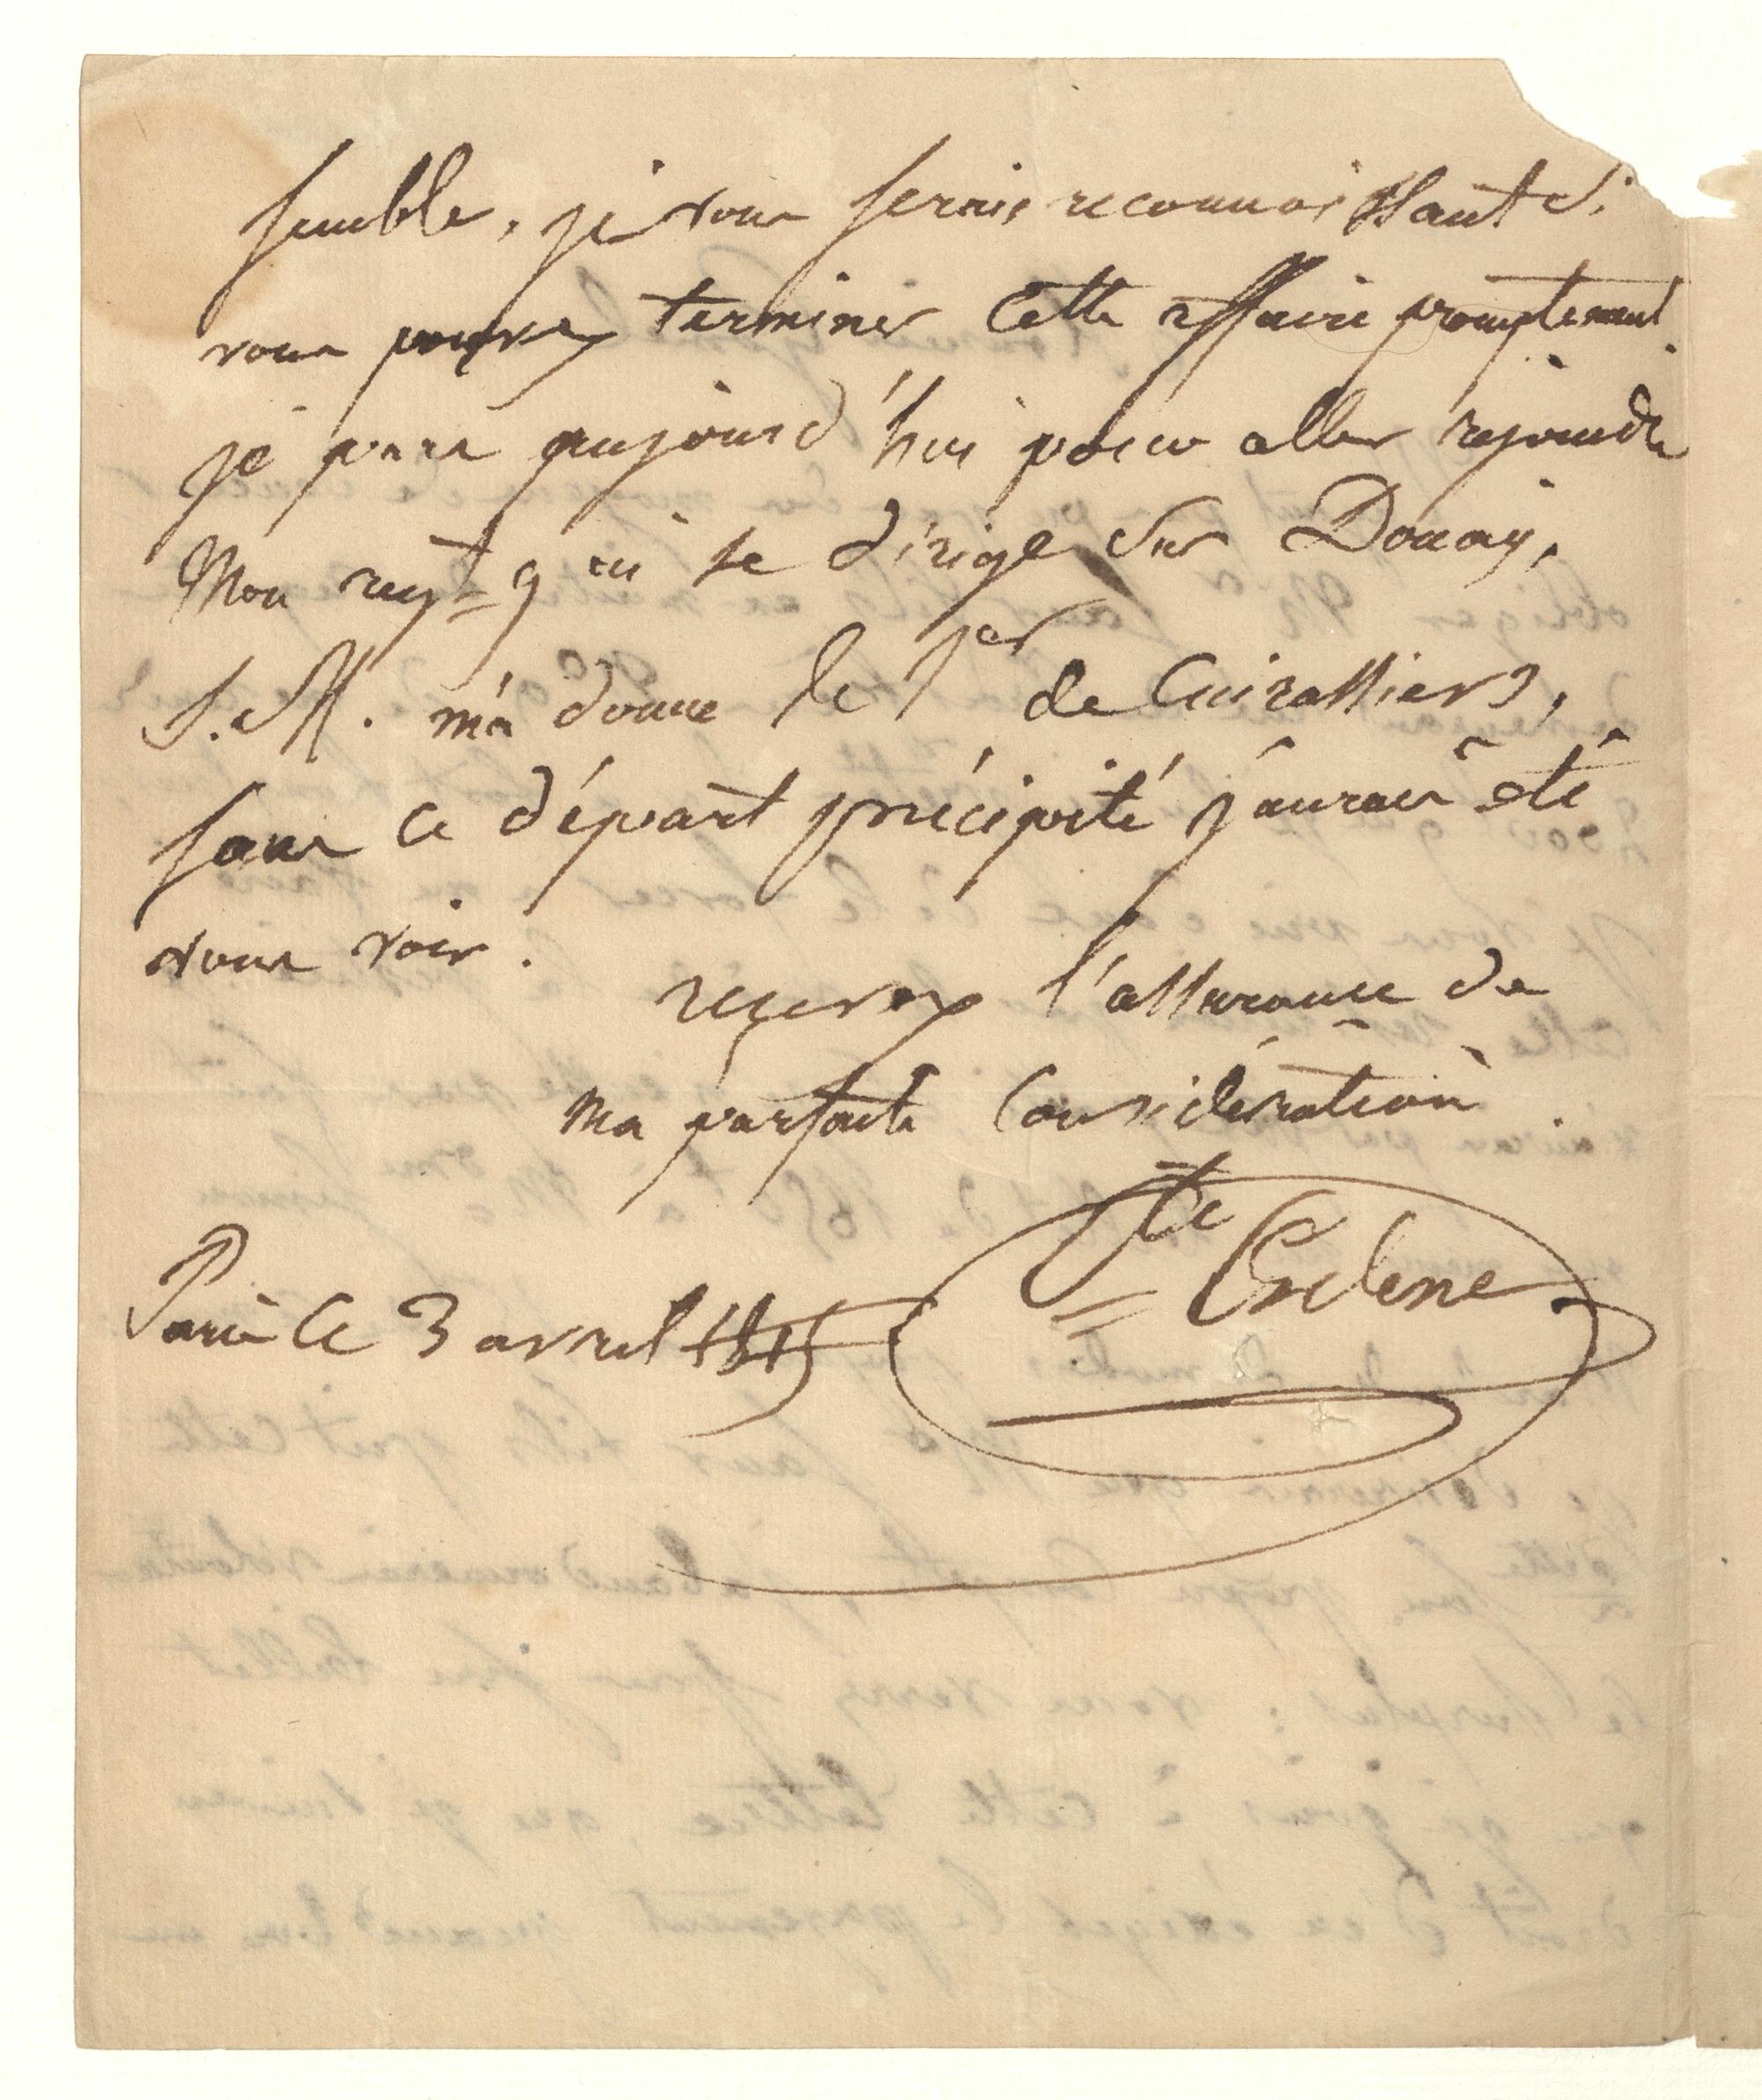 semble, je vous serais reconnoissant si
vous pouvez terminer cette affaire promptement.
je pars aujourd'hui pour aller rejoindre
Mon regt qui se dirige sur Douay,
S. M. m'a donné le 1er de Cuirassiers,
sans ce départ précipité j'aurais été
vous voir.
recevez l'assurance de
ma parfaite Considération
Cte Ordener
Paris le 3 avril 1815